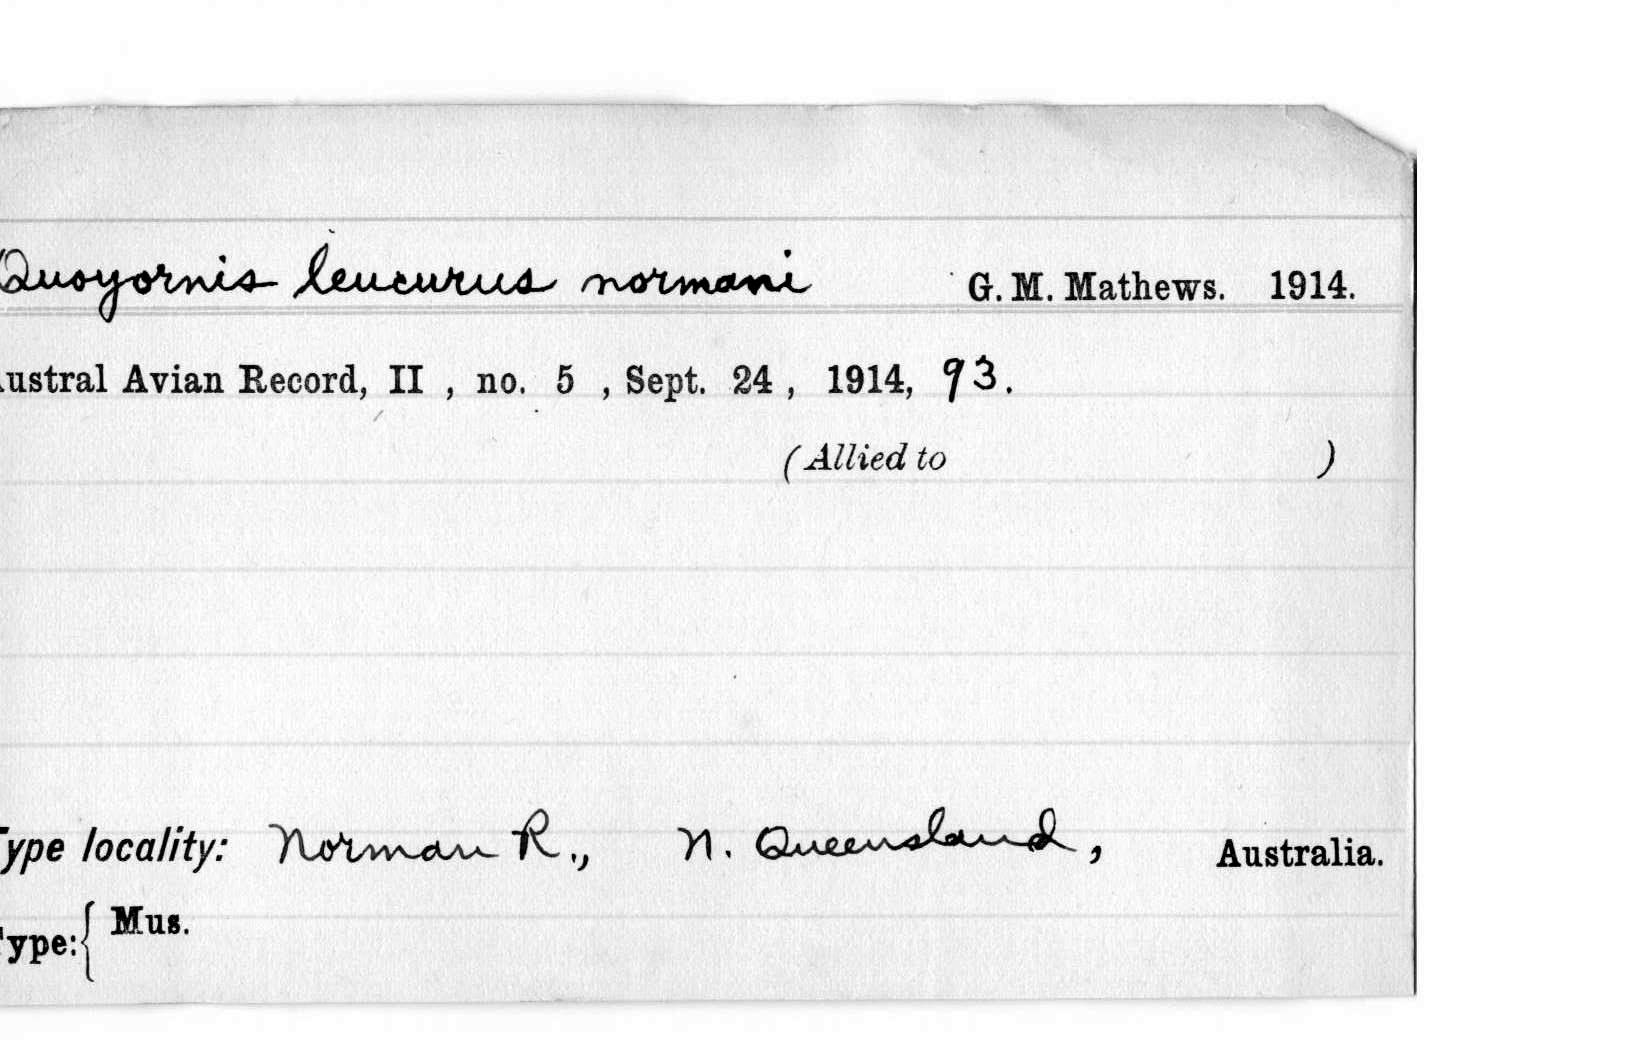 Quoyornis leucurus normani G. M. Mathews. 1914.
ustral Avian Record, II , no. 5 , Sept. 24 , 1914, 93.
(Allied to )
Type locality: Norman R., N. Queensland, Australia.
Type: { Mus.